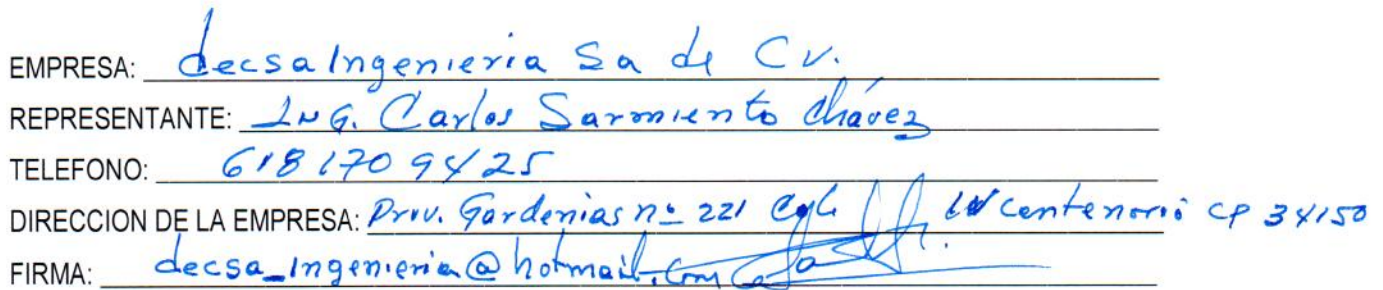 EMPRESA: decsa Ingenieria Sa de Cv.
REPRESENTANTE: ING. Carlos Sarmiento Chávez
TELEFONO: 618 170 9425
DIRECCION DE LA EMPRESA: Priv. Gardenias nº 221 centenario CP 34150
FIRMA: decsa_ingenieria@hotmail.com